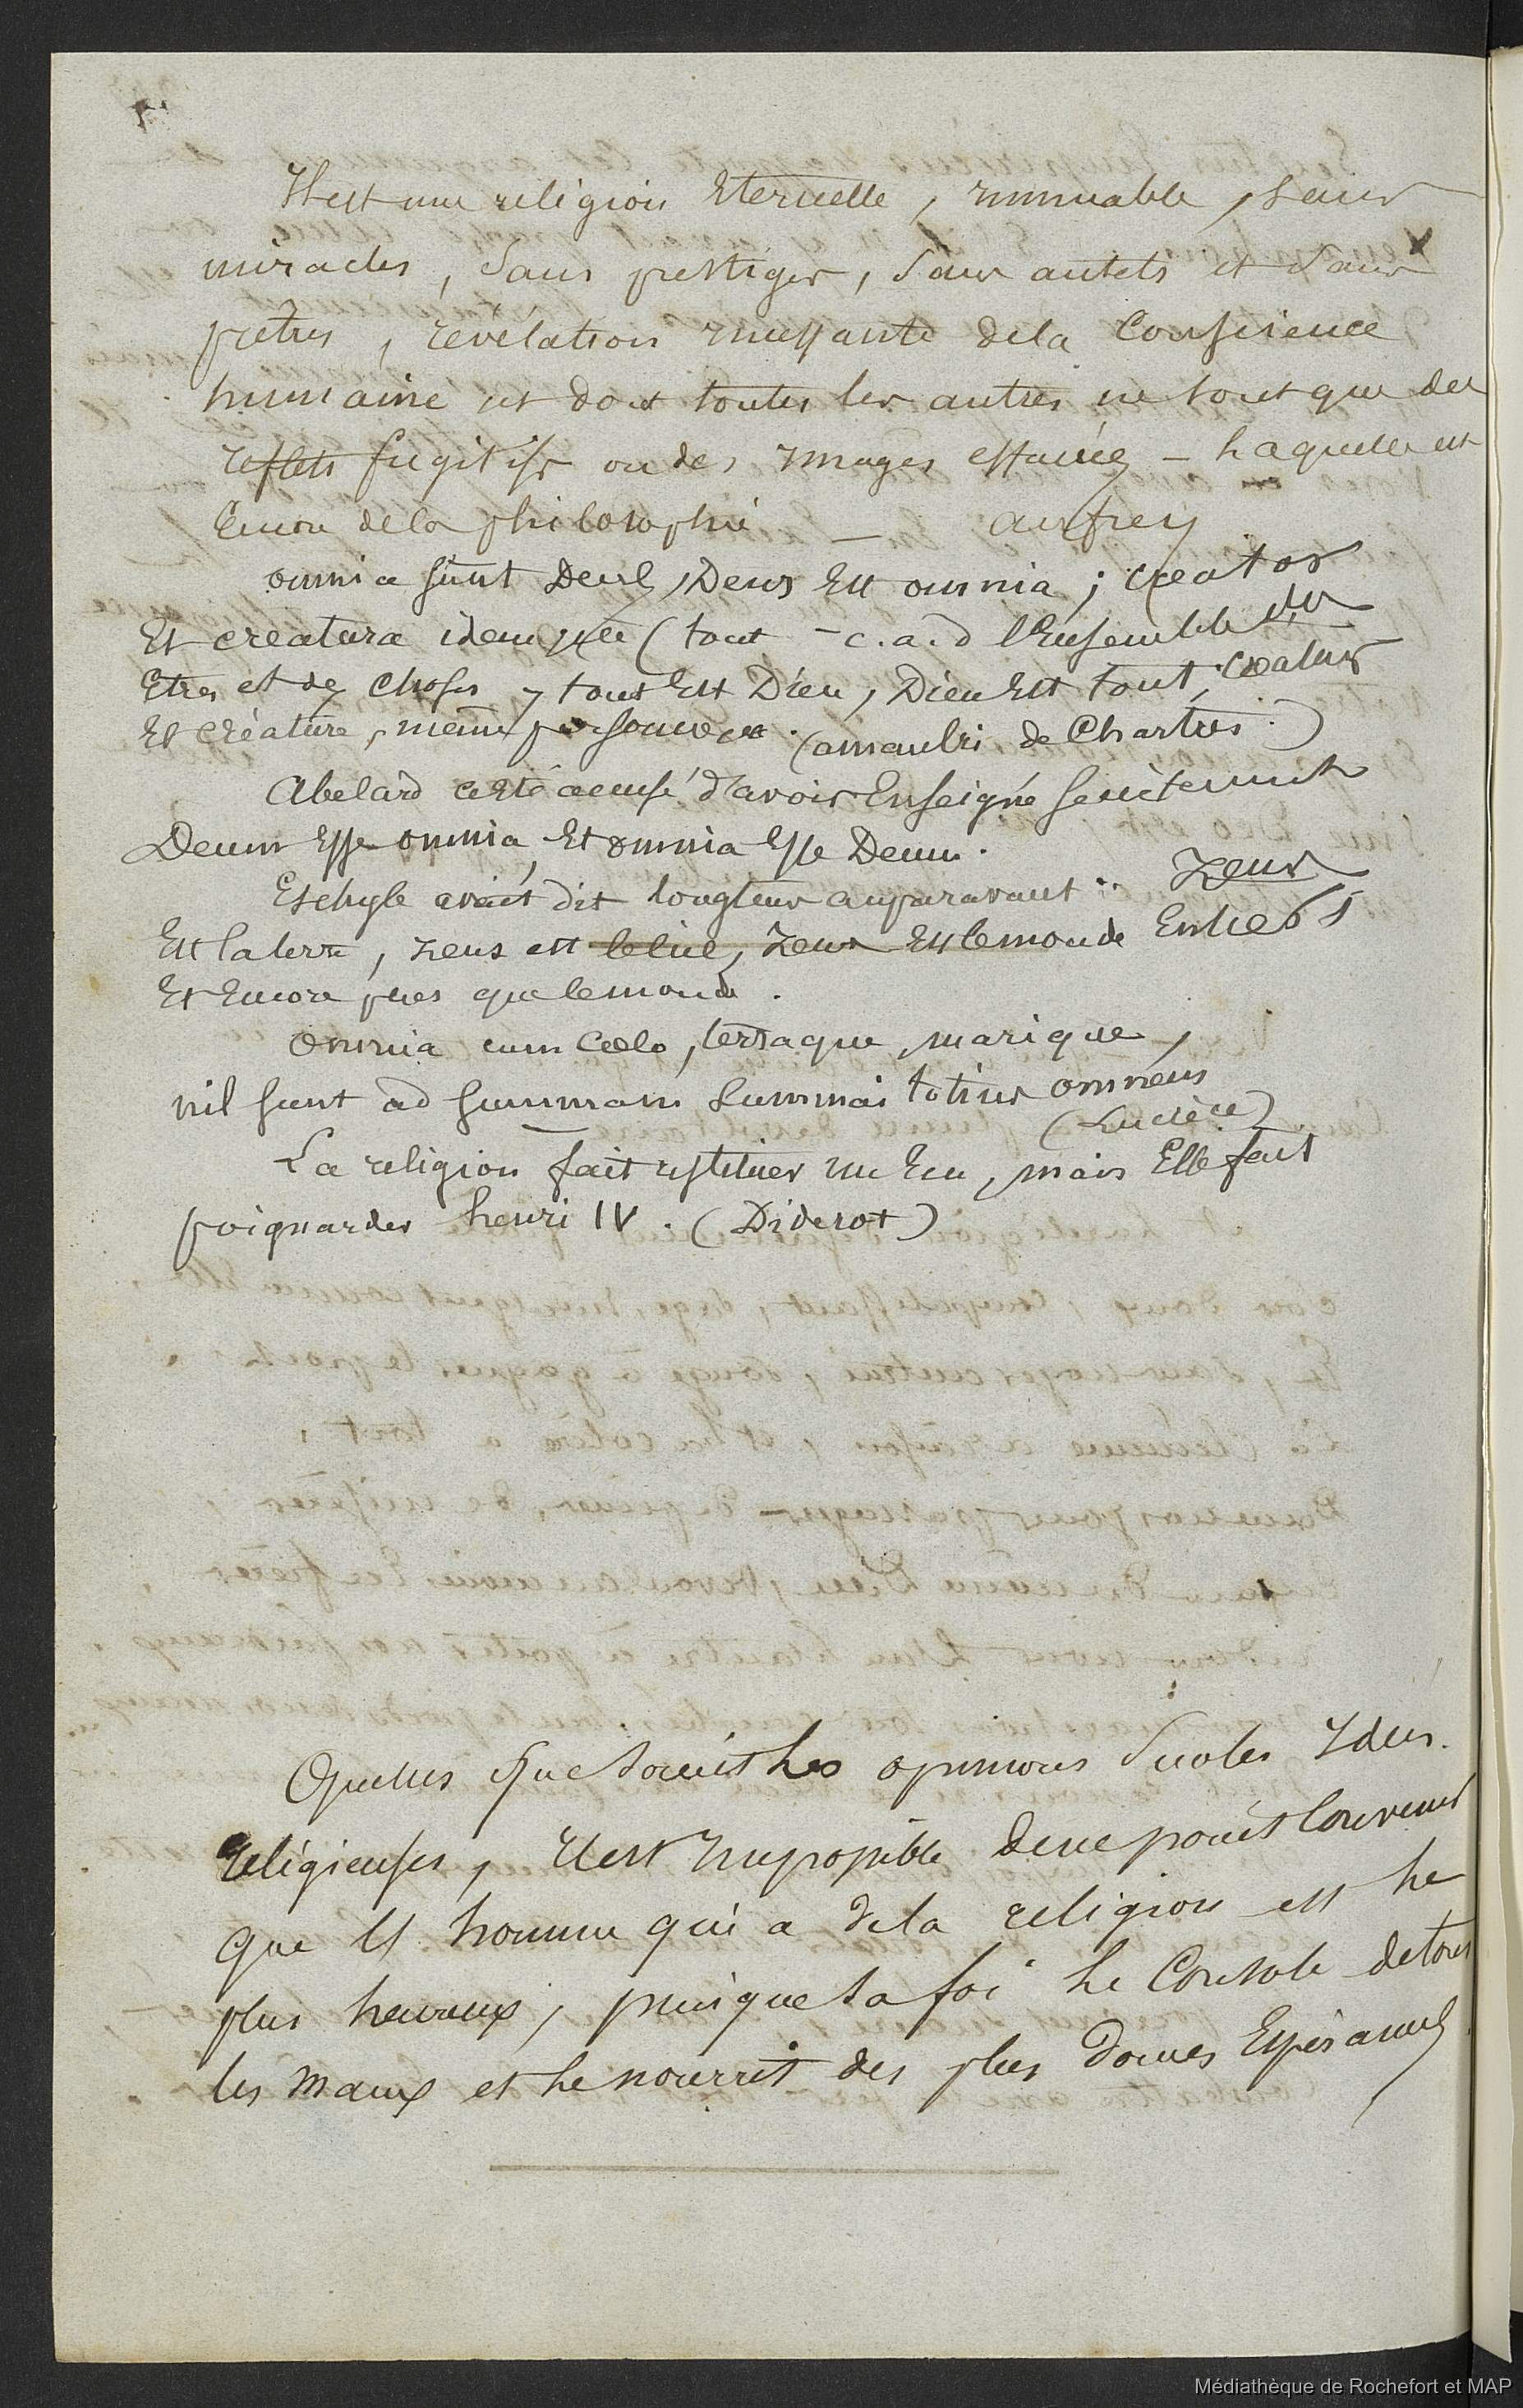 Il est une religion Eternelle, immuable, sans
miracles, sans prestiges, sans autels et sans
prêtres, révélation incessante de la Conscience
humaine et dont toutes les autres ne sont que des
reflets fugitifs ou des images effacées - Laquelle est
Encore de la philosophie —
omnia sunt Deus, Deus Est omnia ; Creator
Et creatura idem (tout - c. a. d l'Ensemble des
Etres et des choses, tout Est Dieu, Dieu Est tout, Créateur
Et créature, même personne. (amaulri de Chartres.)
Abelard a été accusé d'avoir Enseigné secrètement
Deum Esse omnia, Et omnia Esse Deum.
Eschyle avait dit longtems auparavant : Zeus
Est la terre, zeus est le ciel, Zeus Est le monde Entier
Et Encore plus que le monde.
Omnia cum Coelo, terraque, marique,
nil sunt ad summam summai totius omneus
(Lucrèce)
La religion fait restituer un Ecu, mais Elle fait
poignarder henri IV. (Diderot)
Quelles que soient les opinions sur les Idées
religieuses, il est impossible de ne point convenir
que l'homme qui a de la religion est le
plus heureux, puisque sa foi le Console de tous
les maux et le nourrit des plus douces Espérances
Médiathèque de Rochefort et MAP